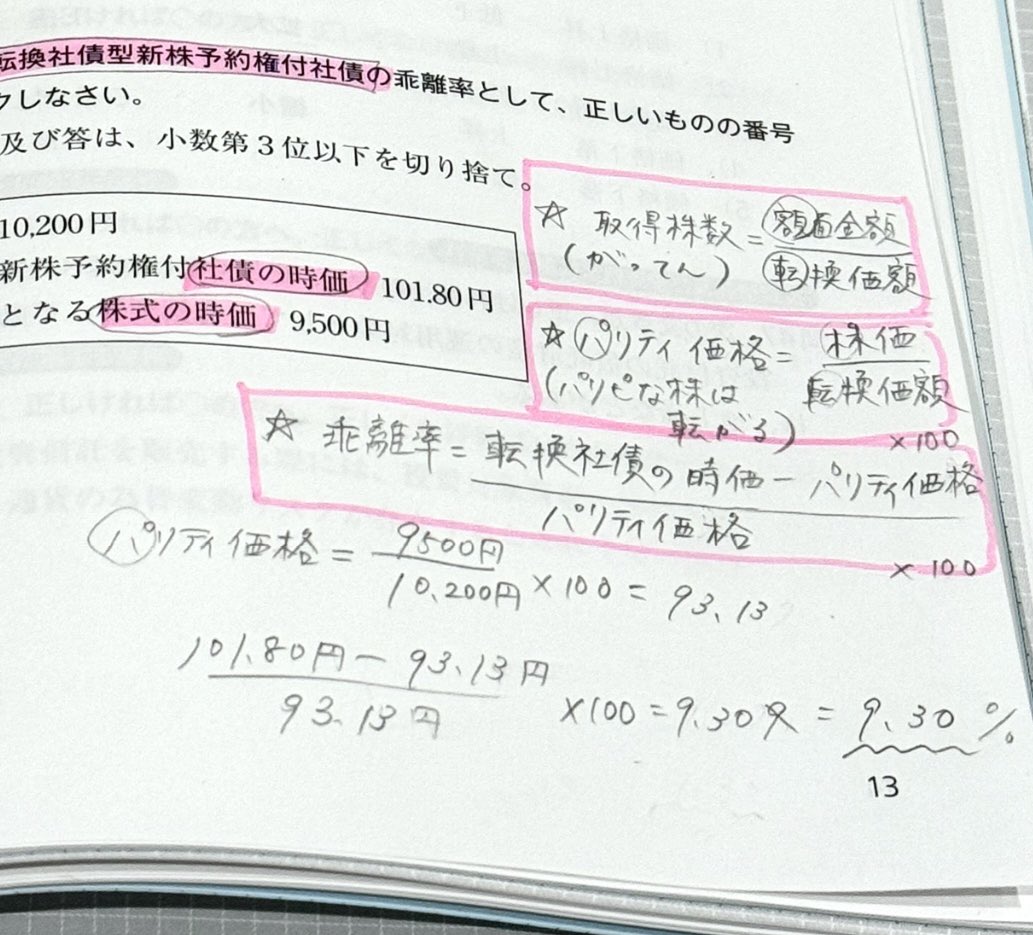 転換社債型新株予約権付社債の乖離率として、正しいものの番号
クしなさい。
及び答は、小数第3位以下を切り捨て。
10,200円
新株予約権付社債の時価 101.80円
となる株式の時価 9,500円
☆ 取得株数=額面金額
(がってん) 転換価額
☆パリティ価格=株価
(パリピな株は 転換価額
転がる) ×100
☆ 乖離率=転換社債の時価-パリティ価格
パリティ価格
×100
パリティ価格=9500円
10,200円×100=93.13
101.80円-93.13円
93.13円
×100=9.30 = 9.30%
13